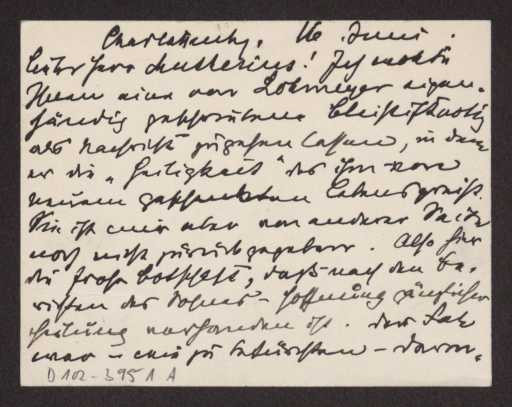 Charlottenbg. 16. Juni.
Lieber Herr Mutterius! Ich wollte
Ihnen eine von Lohmeyer eigen-
händig geschriebene Bleistiftnotiz
als Nachricht zugehen lassen, in der
er die „Heiligkeit" des ihm vom
neuen geschenkten Lebens preist.
Sie ist mir aber von anderer Seite
noch nicht zurückgegeben. Also hier
die frohe Botschaft, daß nach den Be-
richten des Sohnes Hoffnung gänzlicher
Heilung vorhanden ist. Der Fall
war – wie zu befürchten – darm-
D 102-395 1 A